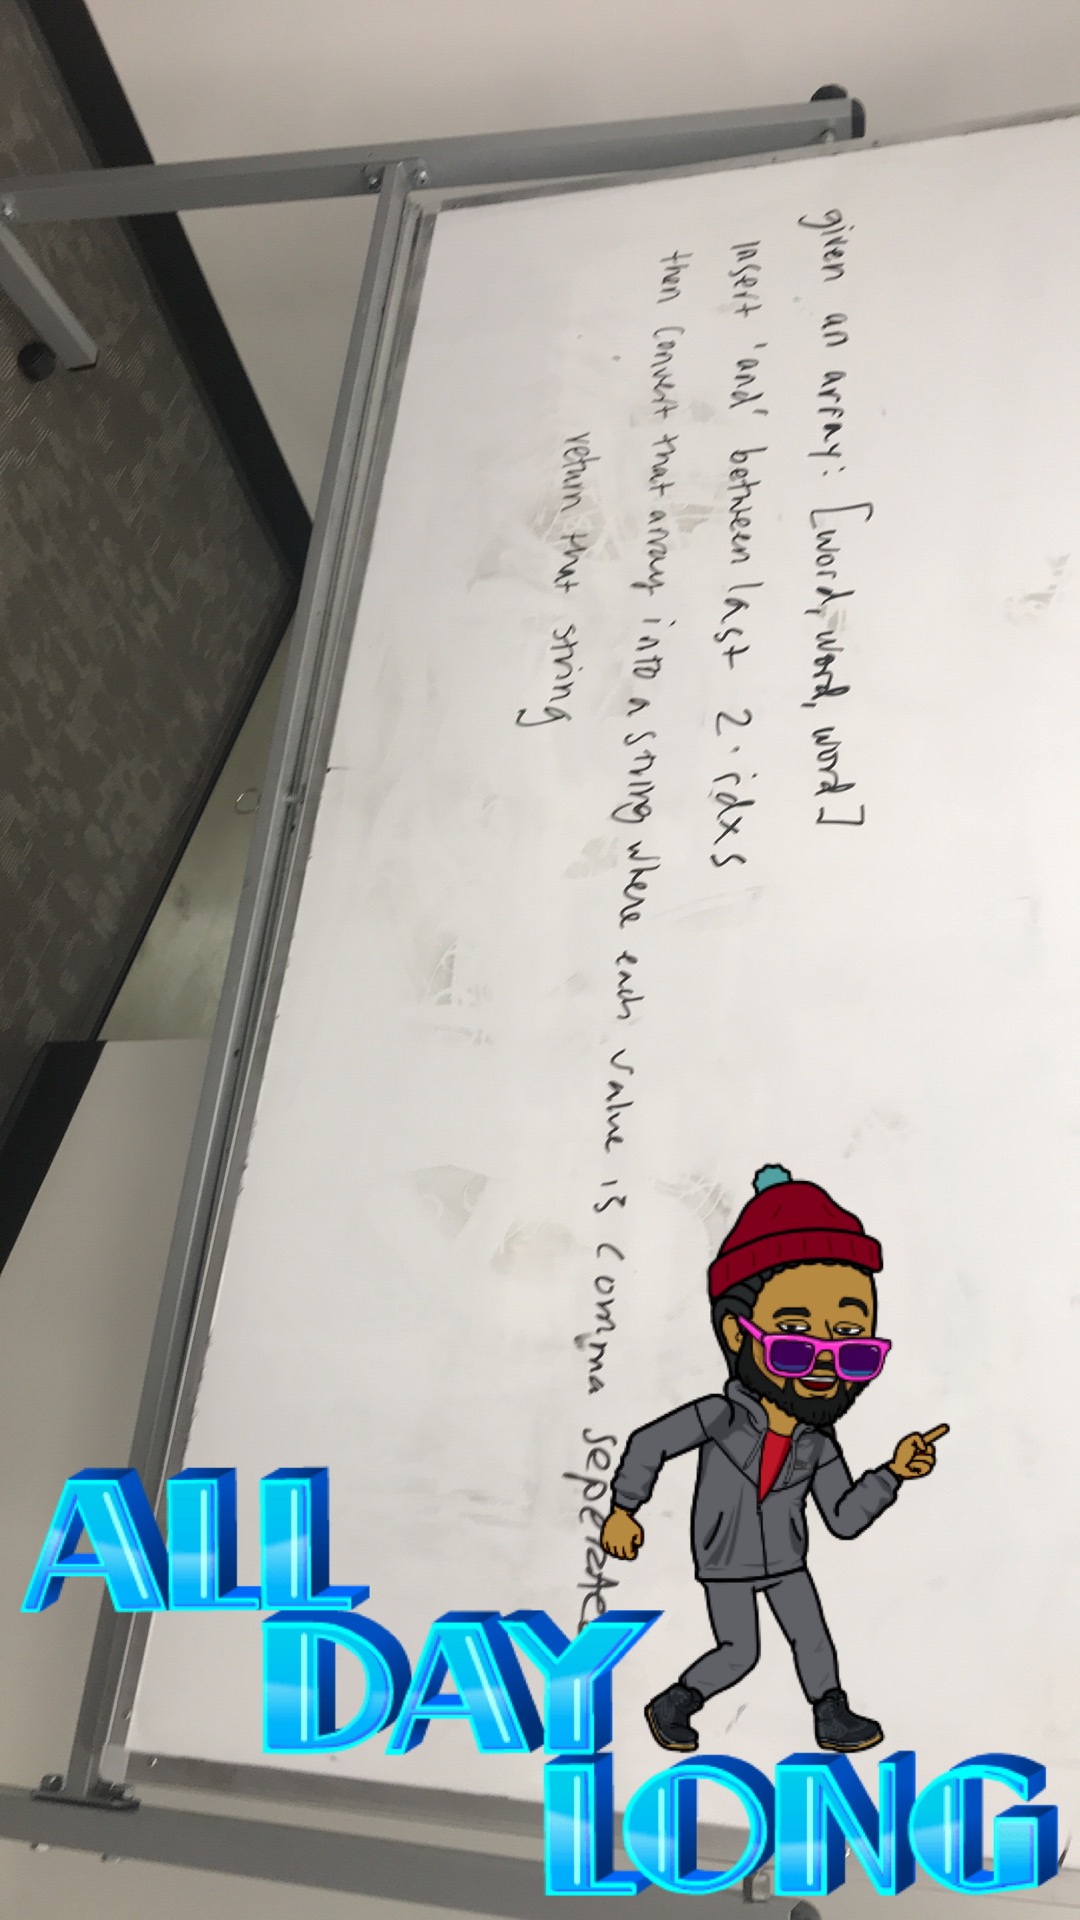 given an array: [word, word, word]
insert 'and' between last 2 idxs
then convert that array into a string where each value is comma seperated
return that string
ALL
DAY
LONG